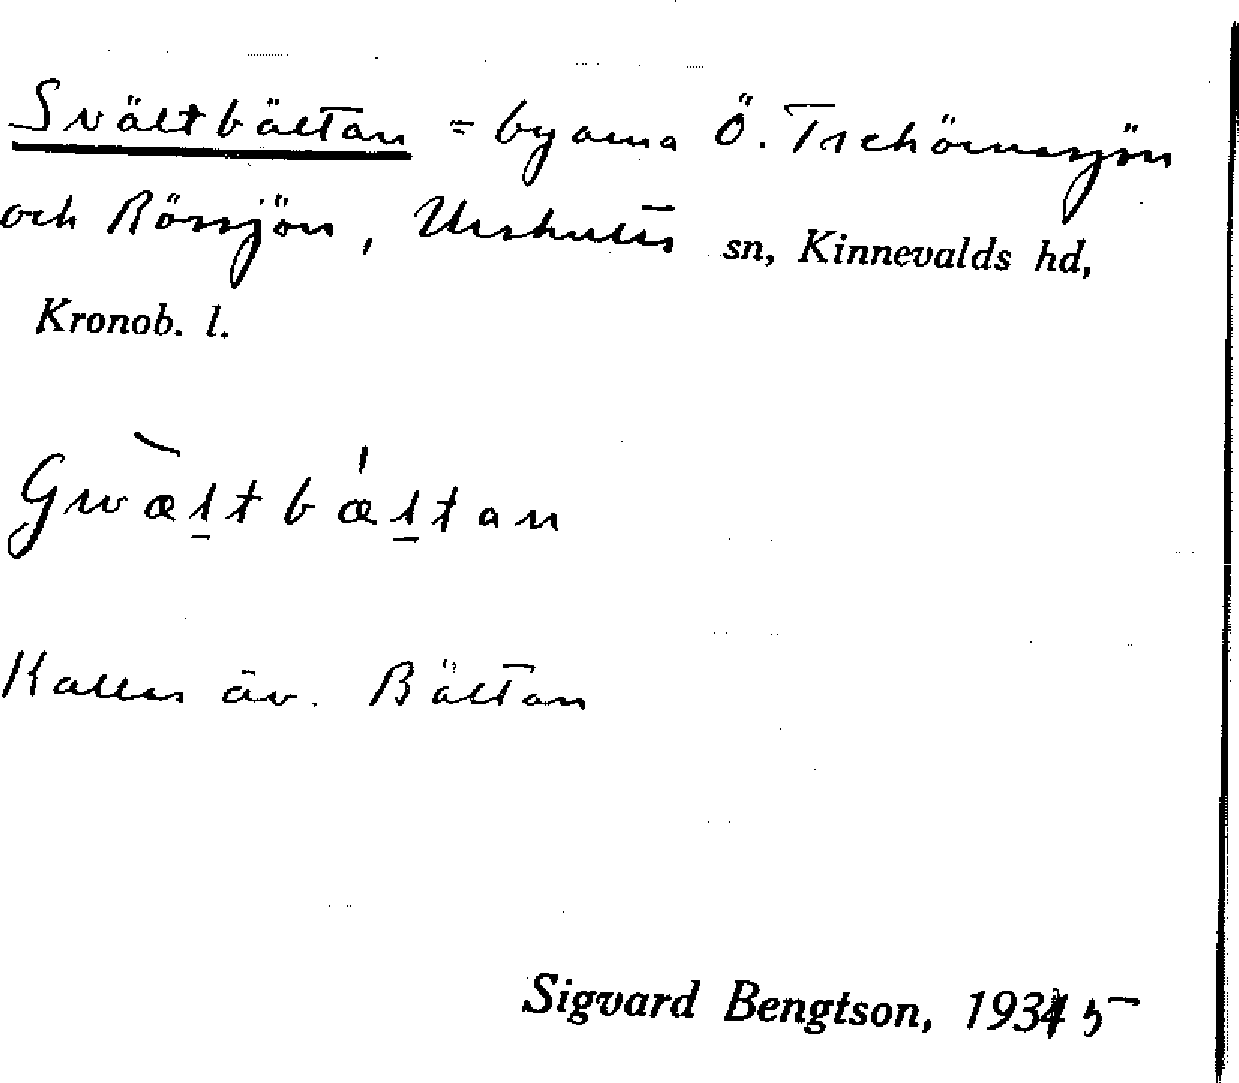 Svältbältan = byarna Ö. Trehörnasjön
och Rössjön, Urshults sn, Kinnevalds hd,
Kronob. l.
Gwæltbæltan
Kallas äv. Bältan
Sigvard Bengtson, 1935